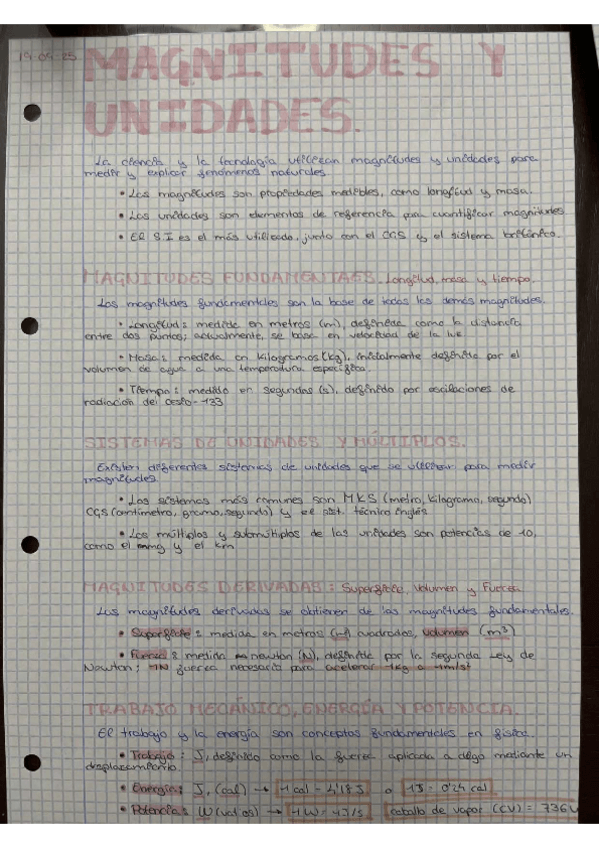 19-09-25
MAGNITUDES Y
UNIDADES.
La ciencia y la tecnología utilizan magnitudes y unidades para
medir y explicar fenómenos naturales.
• Las magnitudes son propiedades medibles, como longitud y masa.
• Las unidades son elementos de referencia para cuantificar magnitudes
• El S.I es el más utilizado, junto con el CGS y el sistema británico.
MAGNITUDES FUNDAMENTAES. Longitud, masa y tiempo.
Las magnitudes fundamentales son la base de todas las demás magnitudes.
• Longitud: medida en metros (m), definida como la distancia
entre dos puntos; actualmente, se basa en velocidad de la luz
• Masa: medida en Kilogramos (kg), inicialmente definida por el
volumen de agua a una temperatura específica.
• Tiempo: medido en segundos (s), definido por oscilaciones de
radiación del cesio-133
SISTEMAS DE UNIDADES Y MÚLTIPLOS.
Existen diferentes sistemas de unidades que se utilizan para medir
magnitudes
• Los sistemas más comunes son MKS (metro, kilogramo, segundo)
CGS (centímetro, gramo, segundo) y el sist. técnico inglés
• Los múltiplos y submúltiplos de las unidades son potencias de 10,
como el mg y el km
MAGNITUDES DERIVADAS: Superficie, Volumen y Fuerza
Las magnitudes derivadas se obtienen de las magnitudes fundamentales.
• Superficie: medida en metros (m²) cuadrados, volumen (m³)
• Fuerza: medida newton (N), definida por la segunda Ley de
Newton; 1N fuerza necesaria para acelerar 1kg a 1m/s²
TRABAJO MECÁNICO, ENERGÍA Y POTENCIA.
El trabajo y la energía son conceptos fundamentales en física.
• Trabajo: J, definido como la fuerza aplicada a algo mediante un
desplazamiento.
• Energía: J, (cal) → 1 cal = 4,18 J o 1J = 0'24 cal
• Potencia: W (vatios) → 1W = 1J/s caballo de vapor (CV) = 736W